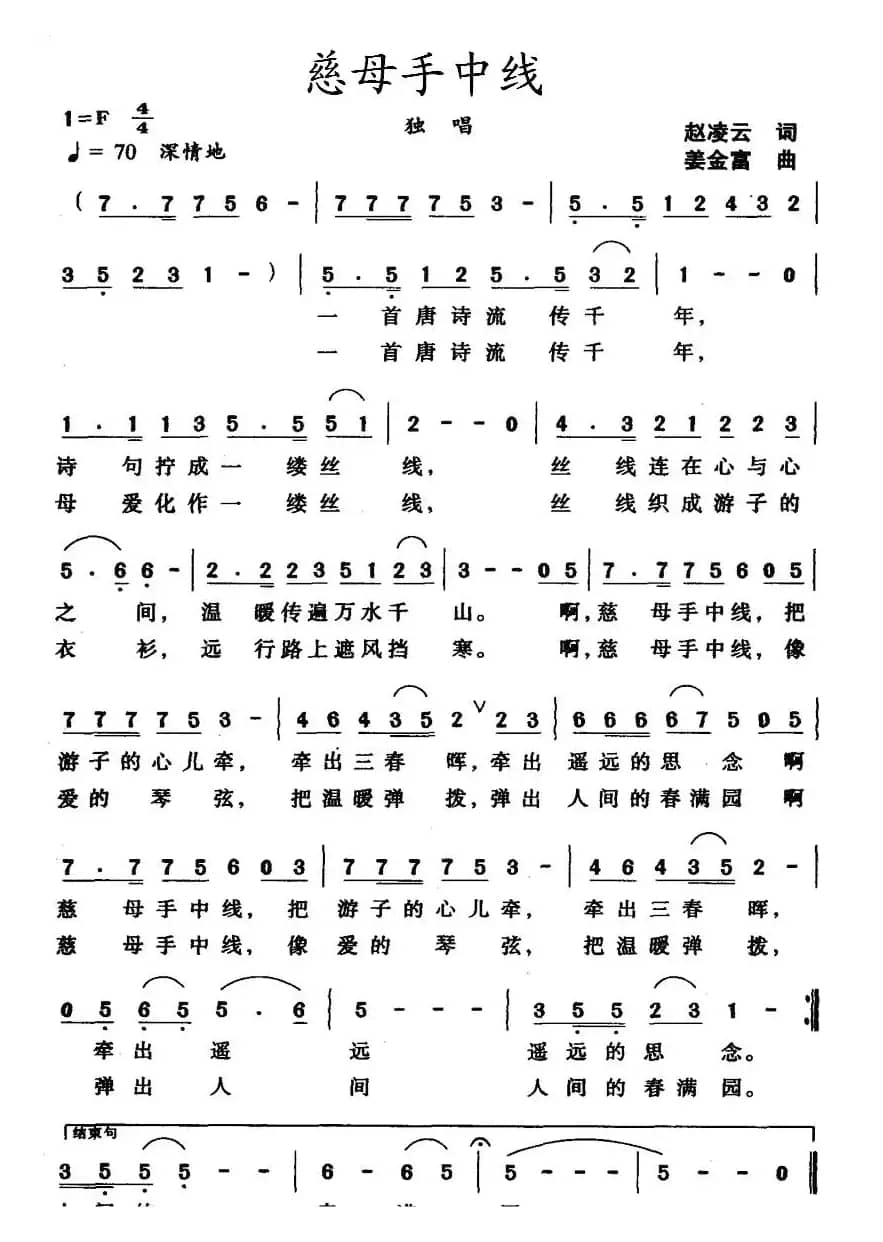 慈母手中线
1=F 4/4 独 唱 赵凌云 词
♩= 70 深情地 姜金富 曲
( 7 . 7 7 5 6 - | 7 7 7 7 5 3 - | 5 . 5 1 2 4 3 2 |
3 5 2 3 1 - ) | 5 . 5 1 2 5 . 5 3 2 | 1 - - 0 |
一 首唐诗流 传千 年，
一 首唐诗流 传千 年，
1 . 1 1 3 5 . 5 5 1 | 2 - - 0 | 4 . 3 2 1 2 2 3 |
诗 句拧成一 缕丝 线， 丝 线连在心与心
母 爱化作一 缕丝 线， 丝 线织成游子的
5 . 6 6 - | 2 . 2 2 3 5 1 2 3 | 3 - - 0 5 | 7 . 7 7 5 6 0 5 |
之 间， 温 暖传遍万水千 山。 啊，慈 母手中线，把
衣 衫， 远 行路上遮风挡 寒。 啊，慈 母手中线，像
7 7 7 7 5 3 - | 4 6 4 3 5 2 ∨ 2 3 | 6 6 6 6 7 5 0 5 |
游子的心儿牵， 牵出三春 晖，牵出 遥远的思 念 啊
爱的 琴 弦， 把温暖弹 拨，弹出 人间的春满园 啊
7 . 7 7 5 6 0 3 | 7 7 7 7 5 3 - | 4 6 4 3 5 2 - |
慈 母手中线， 把 游子的心儿牵， 牵出三春 晖，
慈 母手中线， 像 爱的 琴 弦， 把温暖弹 拨，
0 5 6 5 5 . 6 | 5 - - - | 3 5 5 2 3 1 - :‖
牵出 遥 远 遥远的思 念。
弹出 人 间 人间的春满园。
结束句
3 5 5 5 5 - - | 6 - 6 5 | 5 - - - | 5 - - 0 ‖